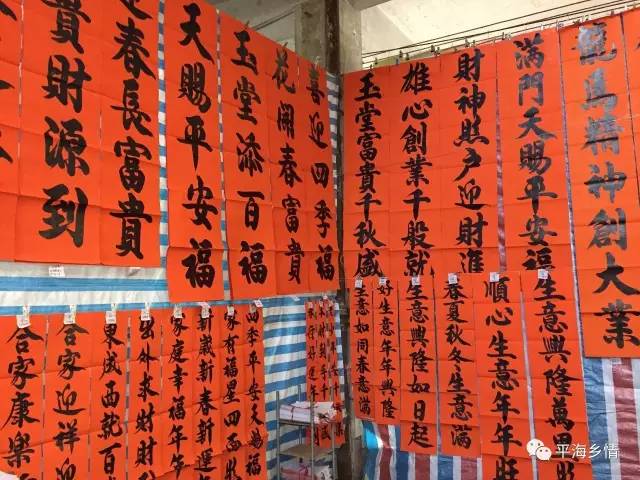 貴財源到
迎春長富貴
天賜平安福
玉堂添百福
花開春富貴
喜迎四季福
玉堂富貴千秋盛
雄心創業千般就
財神照戶迎財進
滿門天賜平安福
龍馬精神創大業
合家康樂
合家迎祥
東成西就
出外求財財
家庭幸福年
新歲新春新運
家有福星四面
四季平安天賜福
生意如同春意滿
好生意年年興隆
生意興隆如日起
春夏秋冬生意滿
順心生意年年旺
生意興隆萬
平海乡情